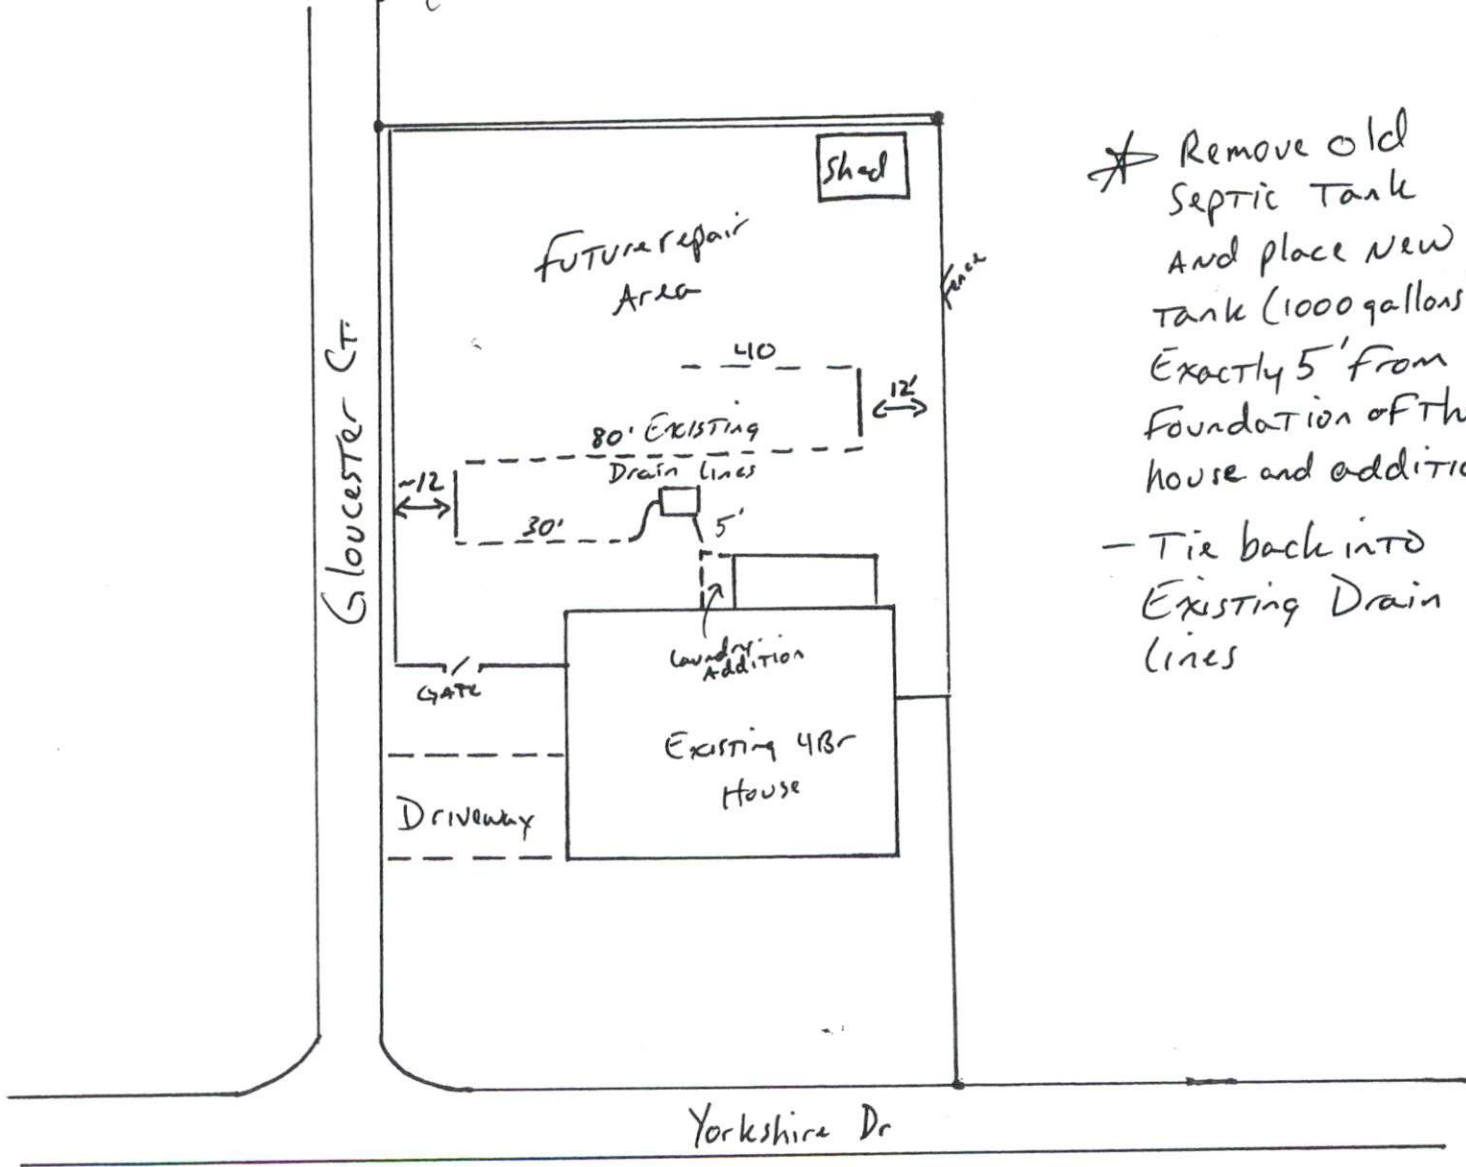 Shed
Future repair
Area
fence
40
12'
80' Existing
Drain lines
~12
30'
5'
Laundry
Addition
GATE
Existing 4Br
House
Driveway
Gloucester Ct.
Yorkshire Dr
Remove old
Septic Tank
And place New
Tank (1000 gallons
Exactly 5' from
foundation of th
house and additio
- Tie back into
Existing Drain
lines